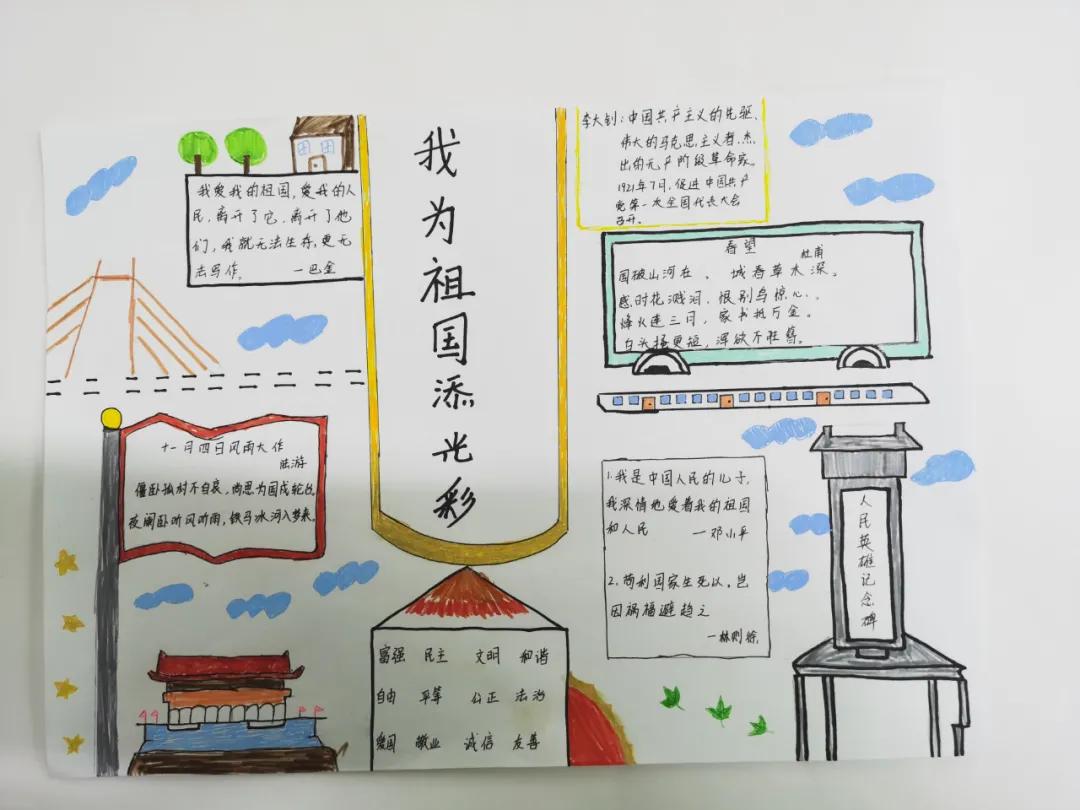 我为祖国添光彩
我爱我的祖国,爱我的人
民,离开了它,离开了他
们,我就无法生存,更无
法写作。 —巴金
李大钊:中国共产主义的先驱,
伟大的马克思主义者,杰
出的无产阶级革命家。
1921年7月,促进中国共产
党第一次全国代表大会
召开。
春望
杜甫
国破山河在、城春草木深。
感时花溅泪,恨别鸟惊心。
烽火连三月,家书抵万金。
白头搔更短,浑欲不胜簪。
十一月四日风雨大作
陆游
僵卧孤村不自哀,尚思为国戍轮台
夜阑卧听风听雨,铁马冰河入梦来。
1.我是中国人民的儿子,
我深情地爱着我的祖国
和人民 —邓小平
2.苟利国家生死以,岂
因祸福避趋之
—林则徐.
人民英雄记念碑
富强 民主 文明 和谐
自由 平等 公正 法治
爱国 敬业 诚信 友善